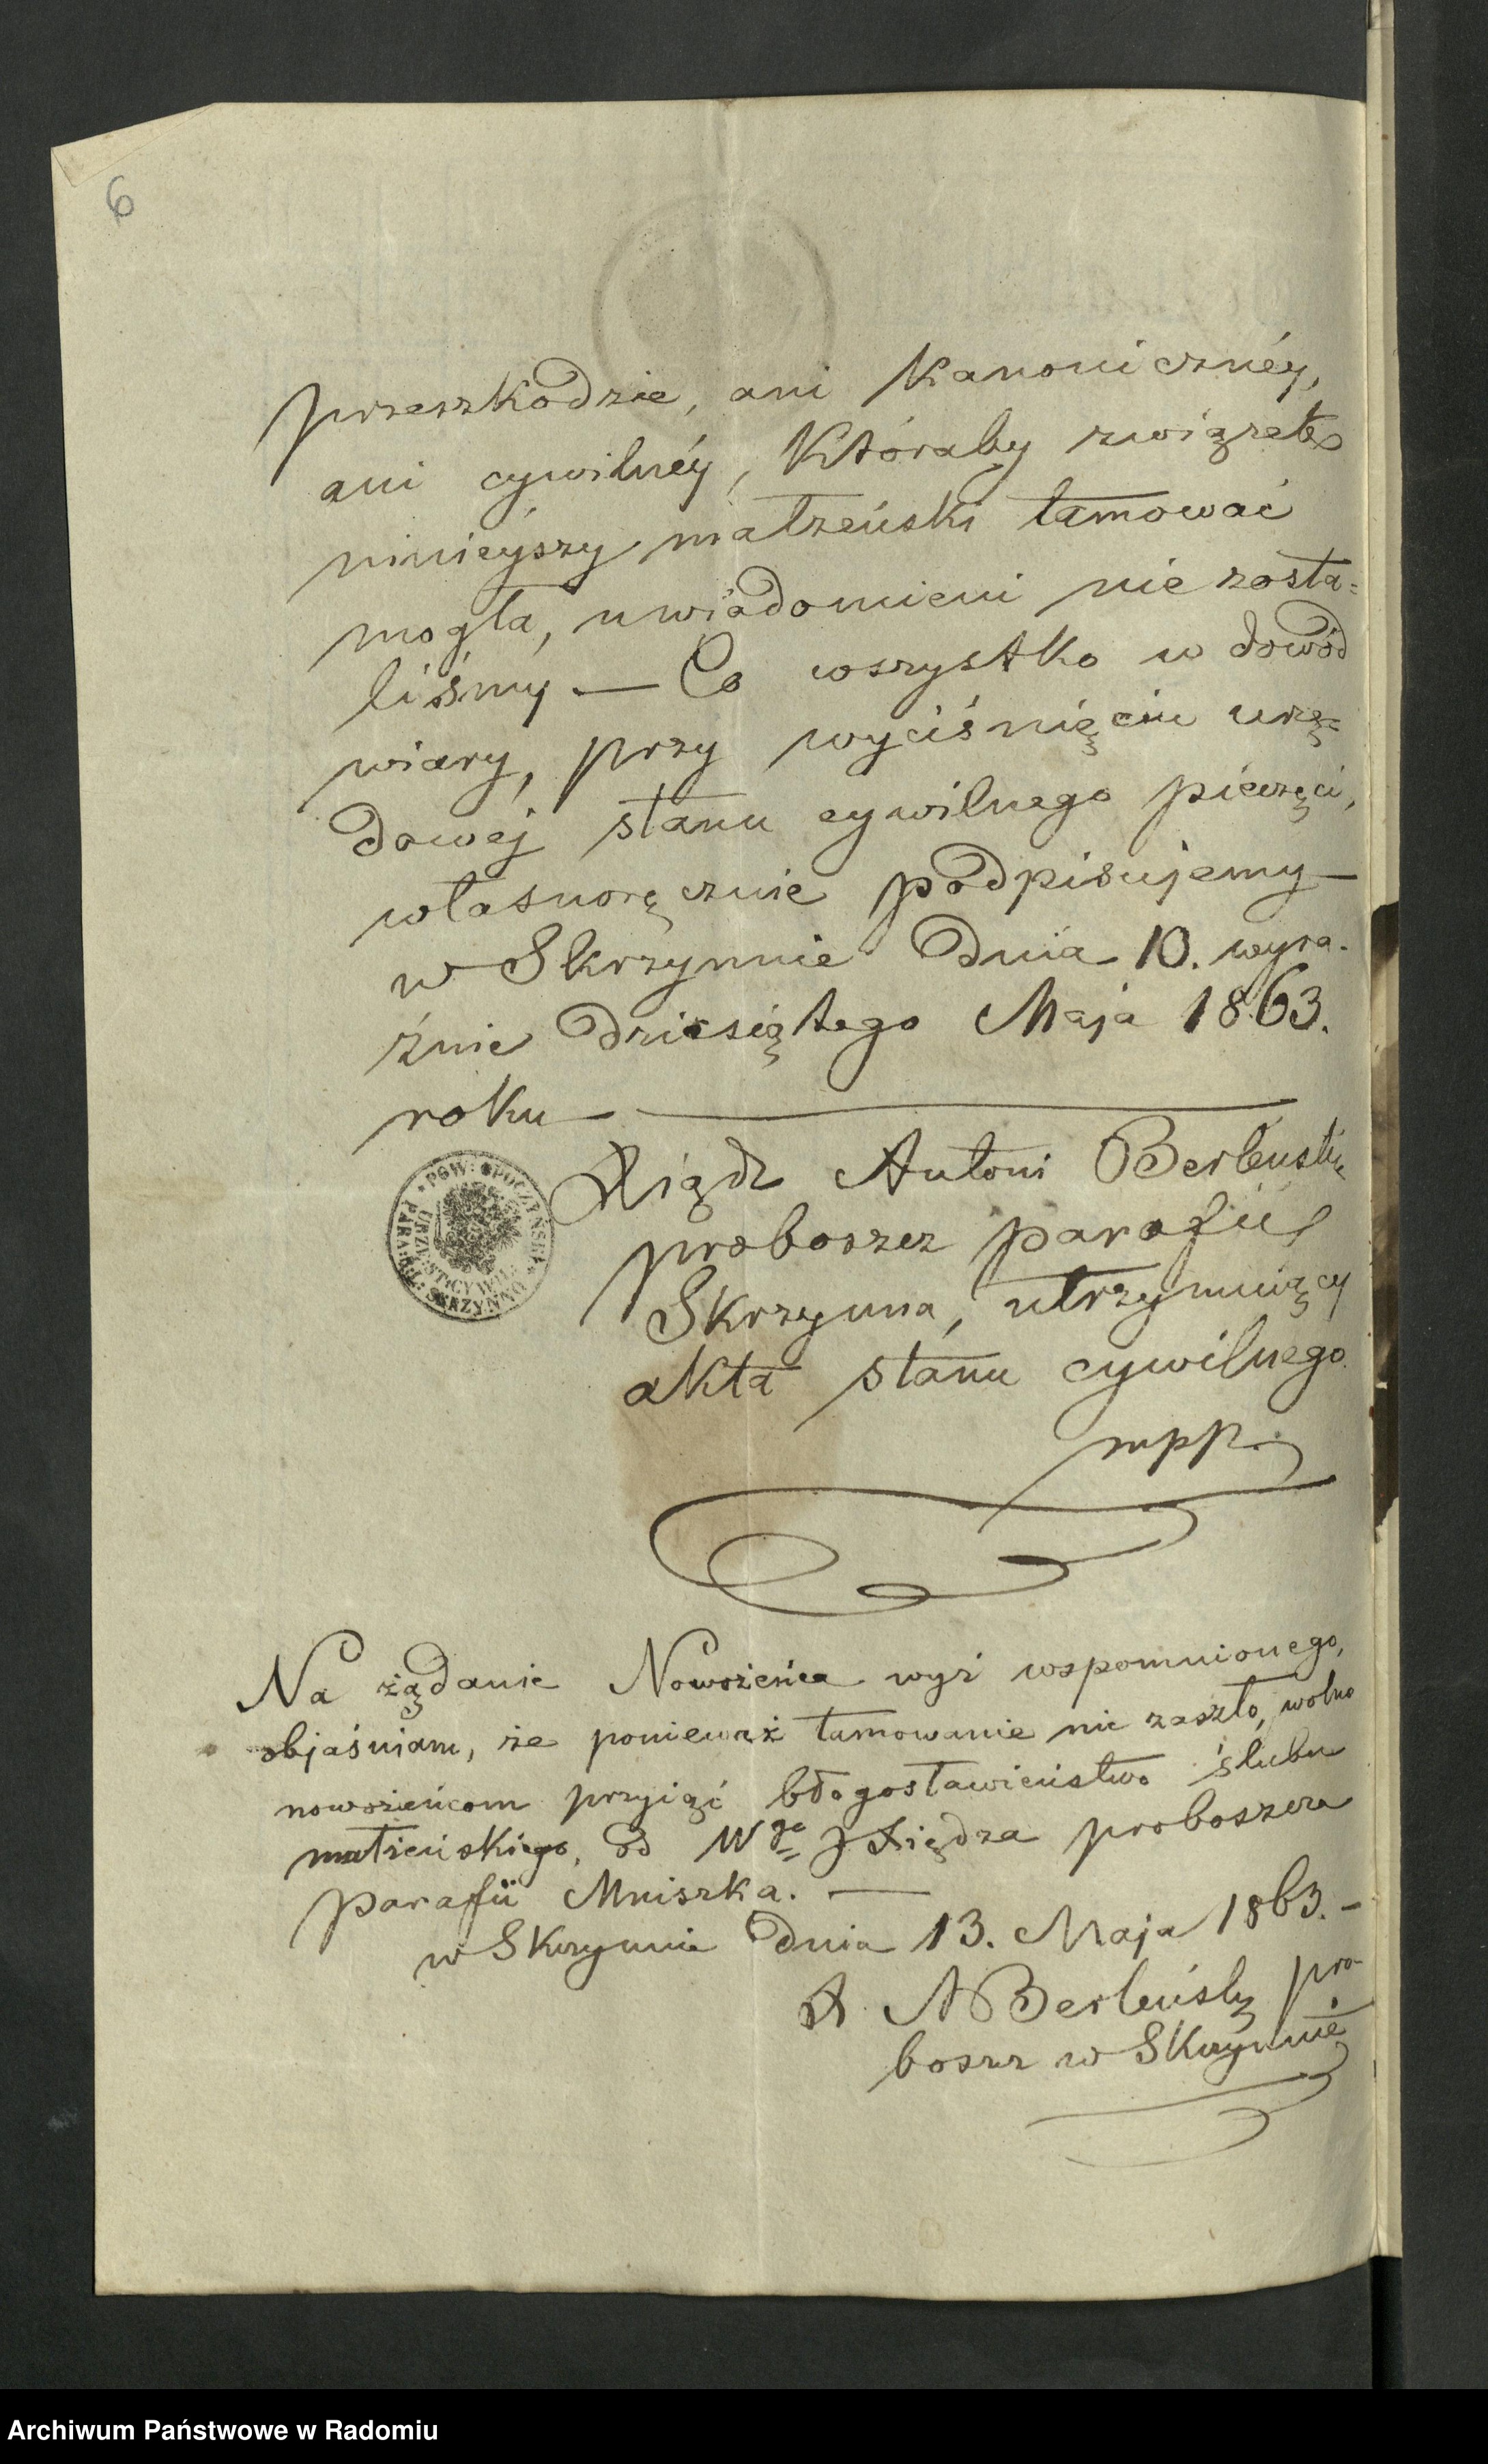 6
przeszkodzie, ani Kanonicznéy,
ani cywilnéy, Któraby związek
ninieyszy małżeński tamować
mogła, uwiadomieni nie zosta=
liśmy — Co wszystko w dowód
wiary, przy wyciśnięciu urzę=
dowej stanu cywilnego pieczęci,
własnoręcznie podpisujemy —
w Skrzynnie dnia 10. wyra-
źnie dziesiątego Maja 1863.
roku —
Xiądz Antoni Berleński
proboszcz parafii
Skrzynna, utrzymuiący
akta stanu cywilnego
mpp.
POW: OPOCZYŃSKI
PARAFII SKRZYNNO
URZAD STT CYWIL:
Na żądanie Nowożeńca wyż wspomnionego,
objaśniam, że ponieważ tamowanie nie zaszło, wolno
nowożeńcom przyiąć błogosławieństwo ślubu
małżeńskiego, od Wgo JXiędza proboszcza
parafii Mniszka. —
w Skrzynnie dnia 13. Maja 1863. —
X. A Berleński pro-
boszcz w Skrzynnie
Archiwum Państwowe w Radomiu